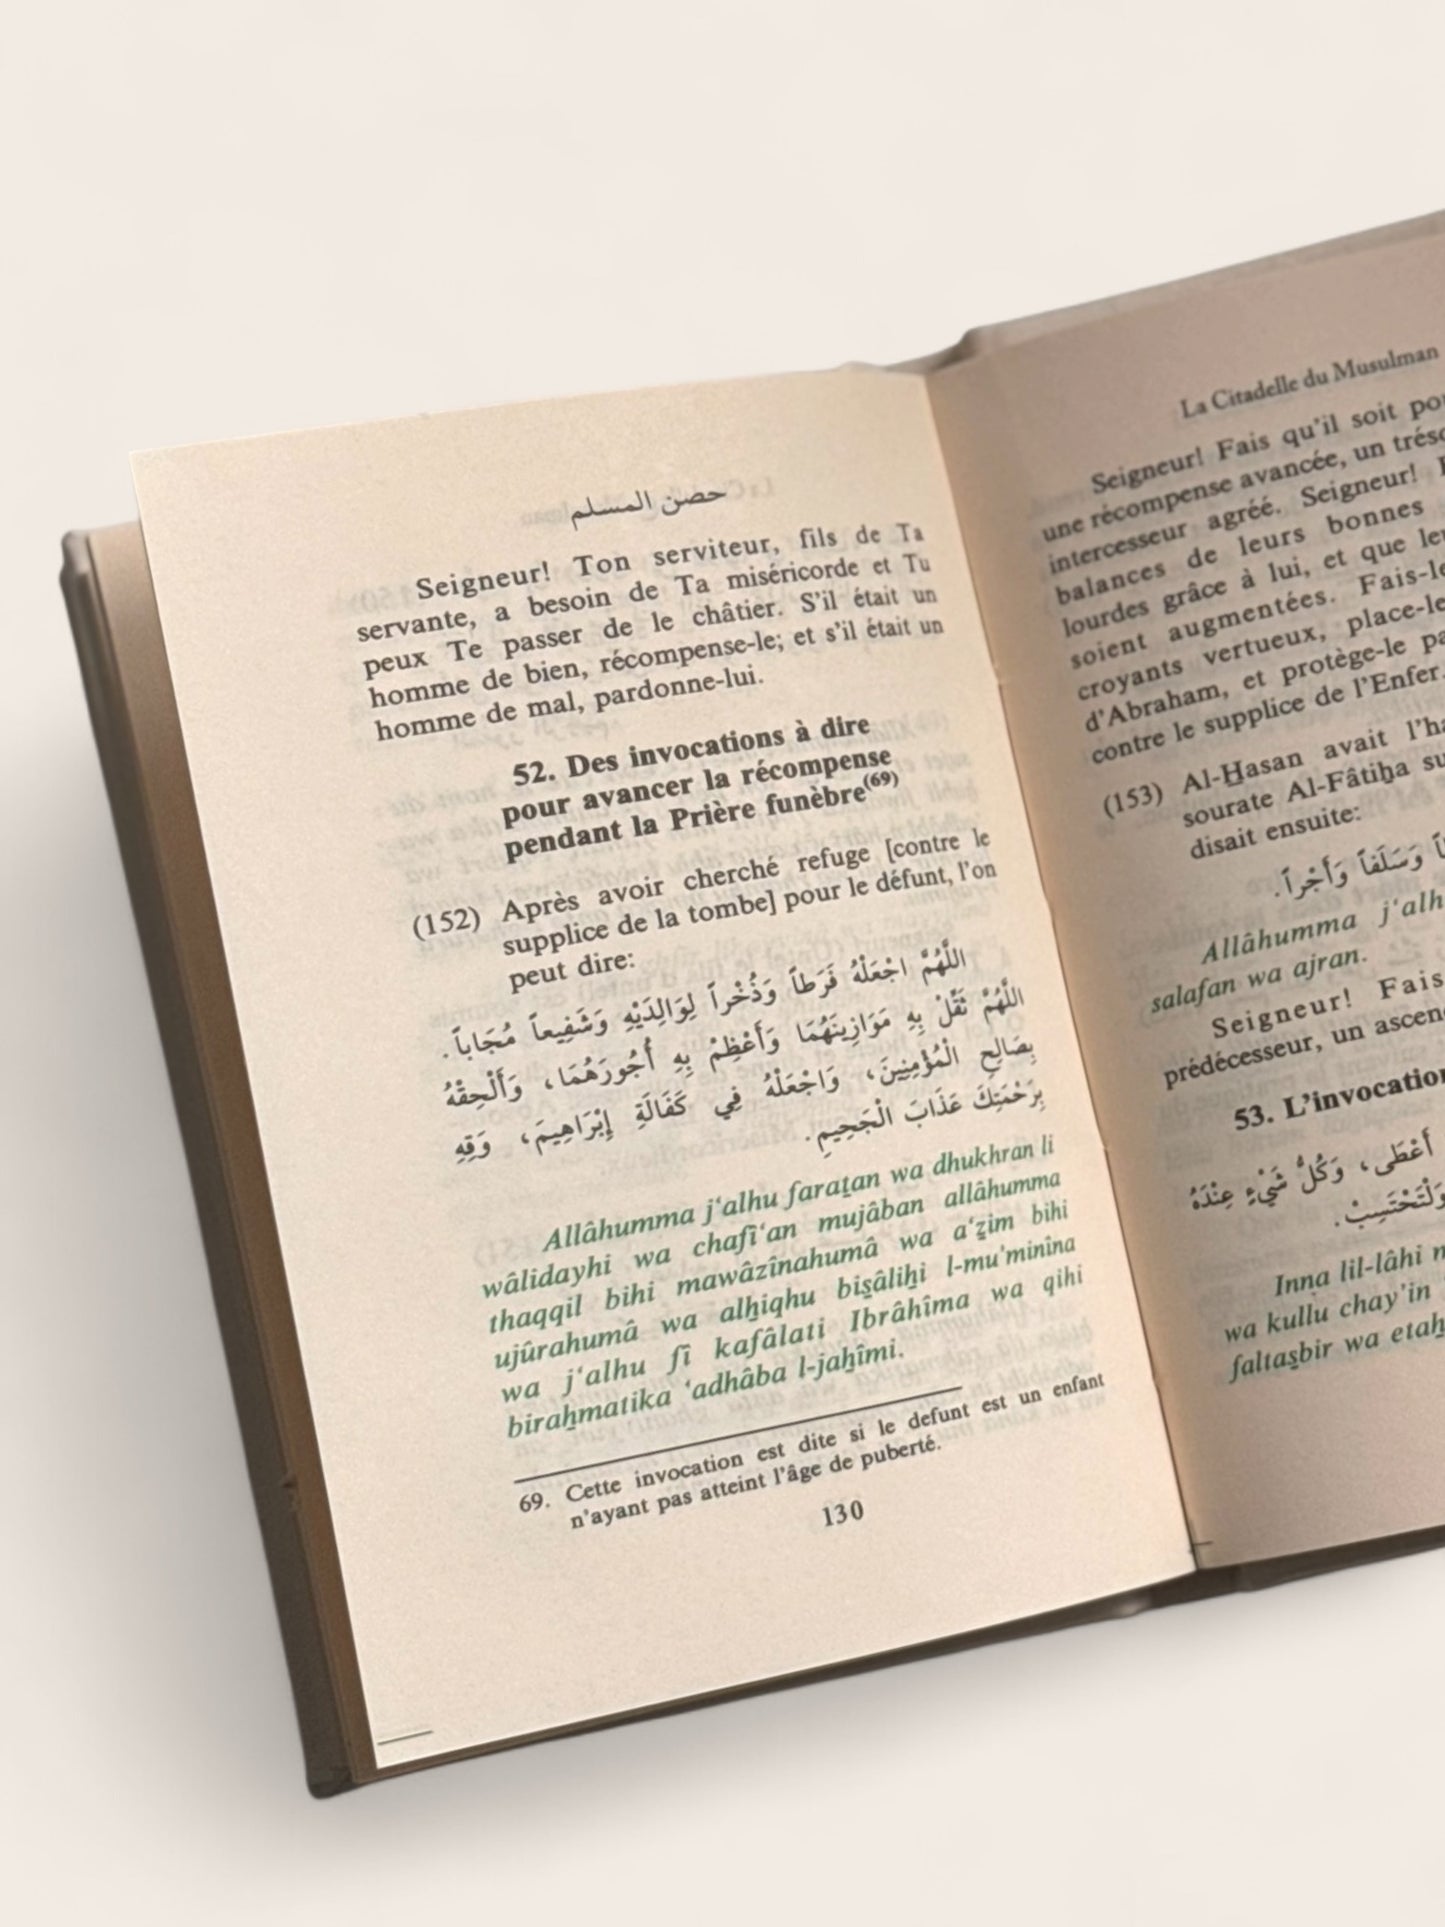 حصن المسلم
Seigneur! Ton serviteur, fils de Ta
servante, a besoin de Ta miséricorde et Tu
peux Te passer de le châtier. S'il était un
homme de bien, récompense-le; et s'il était un
homme de mal, pardonne-lui.
52. Des invocations à dire
pour avancer la récompense
pendant la Prière funèbre(69)
(152) Après avoir cherché refuge [contre le
supplice de la tombe] pour le défunt, l'on
peut dire:
اللَّهُمَّ اجْعَلْهُ فَرَطاً وَذُخْراً لِوَالِدَيْهِ وَشَفِيعاً مُجَاباً.
اللَّهُمَّ ثَقِّلْ بِهِ مَوَازِينَهُمَا وَأَعْظِمْ بِهِ أُجُورَهُمَا، وَأَلْحِقْهُ
بِصَالِحِ الْمُؤْمِنِينَ، وَاجْعَلْهُ فِي كَفَالَةِ إِبْرَاهِيمَ، وَقِهِ
بِرَحْمَتِكَ عَذَابَ الْجَحِيمِ.
Allâhumma j‘alhu faraṯan wa dhukhran li
wâlidayhi wa chafî‘an mujâban allâhumma
thaqqil bihi mawâzînahumâ wa a‘ẕim bihi
ujûrahumâ wa alẖiqhu bis̱âliẖi l-mu'minîna
wa j‘alhu fî kafâlati Ibrâhîma wa qihi
biraẖmatika ‘adhâba l-jaẖîmi.
69. Cette invocation est dite si le defunt est un enfant
n'ayant pas atteint l'âge de puberté.
130
La Citadelle du Musulman
Seigneur! Fais qu'il soit
une récompense avancée, un
intercesseur agréé. Seigneur!
balances de leurs bonnes
lourdes grâce à lui, et que
soient augmentées.
croyants vertueux,
d'Abraham, et protège-le
contre le supplice de l'Enfer.
(153) Al-H̱asan avait
sourate Al-Fâtiẖa
disait ensuite:
وَسَلَفاً وَأَجْراً.
Allâhumma
salafan wa ajran.
Seigneur! Fais
prédécesseur, un
53.
أَعْطَى، وَكُلُّ شَيْءٍ عِنْدَهُ
وَلْتَحْتَسِبْ.
Inna lil-lâhi
wa kullu chay'in
faltas̱bir wa